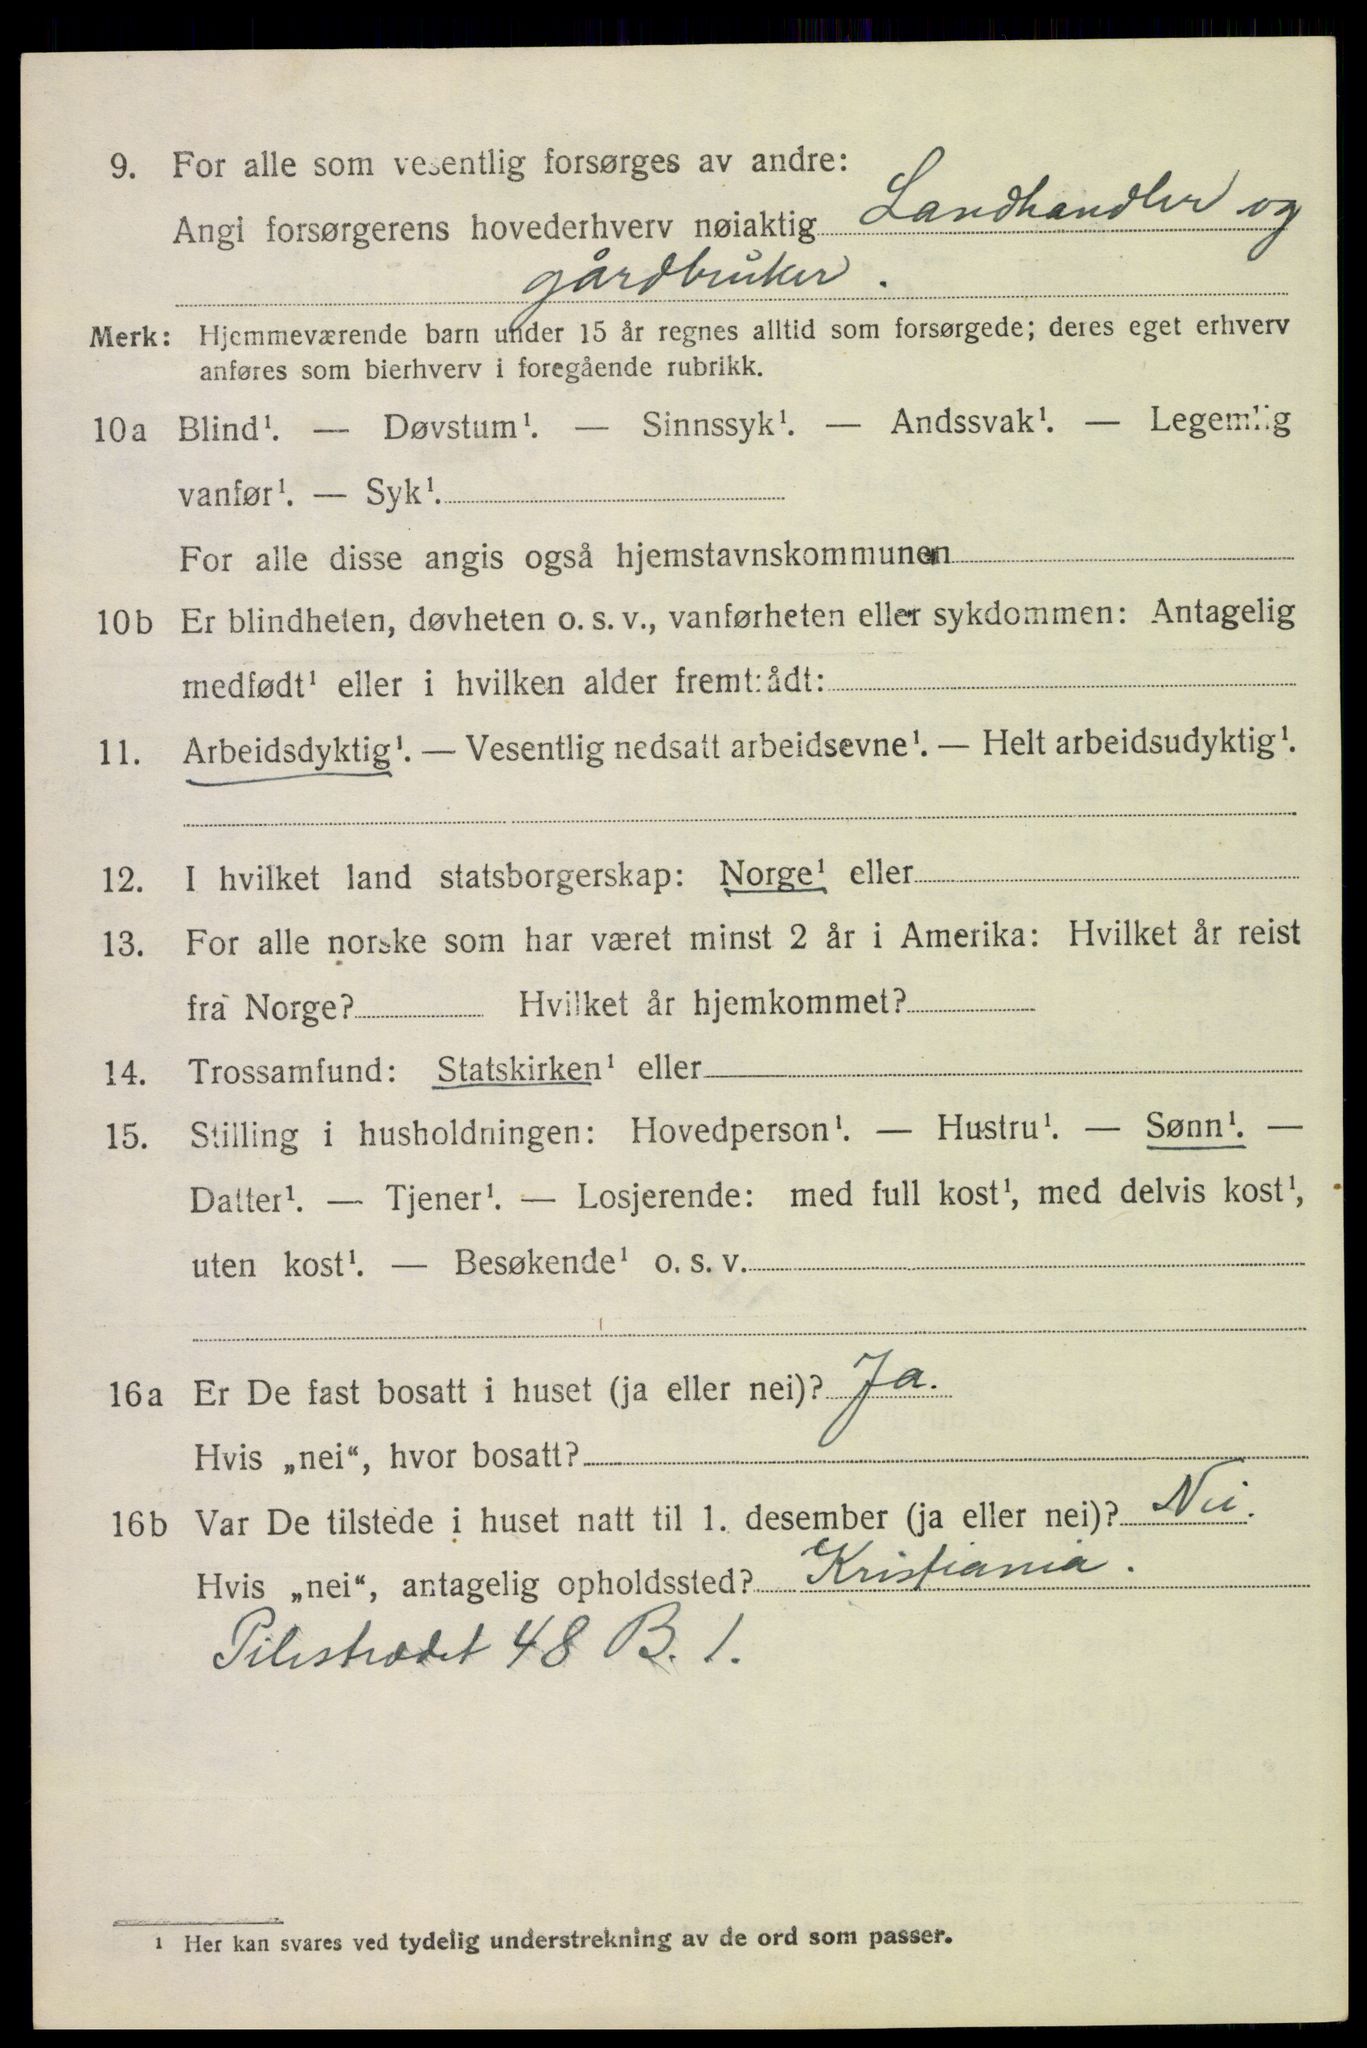 9. For alle som vesentlig forsørges av andre:
Angi forsørgerens hovederhverv nøiaktig Landhandler og
gårdbruker.
Merk: Hjemmeværende barn under 15 år regnes alltid som forsørgede; deres eget erhverv
anføres som bierhverv i foregående rubrikk.
10a Blind¹. — Døvstum¹. — Sinnssyk¹. — Andssvak¹. — Legemlig
vanfør¹. — Syk¹.
For alle disse angis også hjemstavnskommunen
10b Er blindheten, døvheten o. s. v., vanførheten eller sykdommen: Antagelig
medfødt¹ eller i hvilken alder fremtrådt:
11. Arbeidsdyktig¹. — Vesentlig nedsatt arbeidsevne¹. — Helt arbeidsudyktig¹.
12. I hvilket land statsborgerskap: Norge¹ eller
13. For alle norske som har været minst 2 år i Amerika: Hvilket år reist
fra Norge? Hvilket år hjemkommet?
14. Trossamfund: Statskirken¹ eller
15. Stilling i husholdningen: Hovedperson¹. — Hustru¹. — Sønn¹. —
Datter¹. — Tjener¹. — Losjerende: med full kost¹, med delvis kost¹,
uten kost¹. — Besøkende¹ o. s. v.
16a Er De fast bosatt i huset (ja eller nei)? Ja.
Hvis „nei“, hvor bosatt?
16b Var De tilstede i huset natt til 1. desember (ja eller nei)? Nei.
Hvis „nei“, antagelig opholdssted? Kristiania.
Pilestrædet 48 B. 1.
¹ Her kan svares ved tydelig understrekning av de ord som passer.